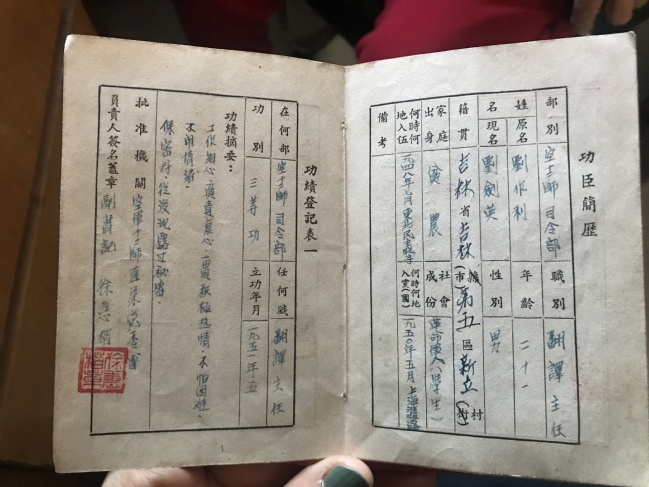 功臣簡歷
部別 空十二師司令部 職別 翻譯主任
姓名 原名 劉作利 年齡 二十一
現名 劉劍英 性別 男
籍貫 吉林省吉林縣(市)第五區新立村(街)
家庭出身 貧農 社會成份 革命軍人(學生)
何時何地入伍 一九四八年 何時何地入黨(團) 一九五〇年五月上海
備考
功績登記表一
在何部 空十二師司令部 任何職 翻譯主任
功別 三等功 立功年月 一九五一年五
功績摘要:
工作細心、認真負責、一貫積極熱情、不怕困難、
不鬧情緒。
保密好,從沒現露过秘密。
批准機關 空軍十二師直
負責人簽名蓋章 副書記 徐